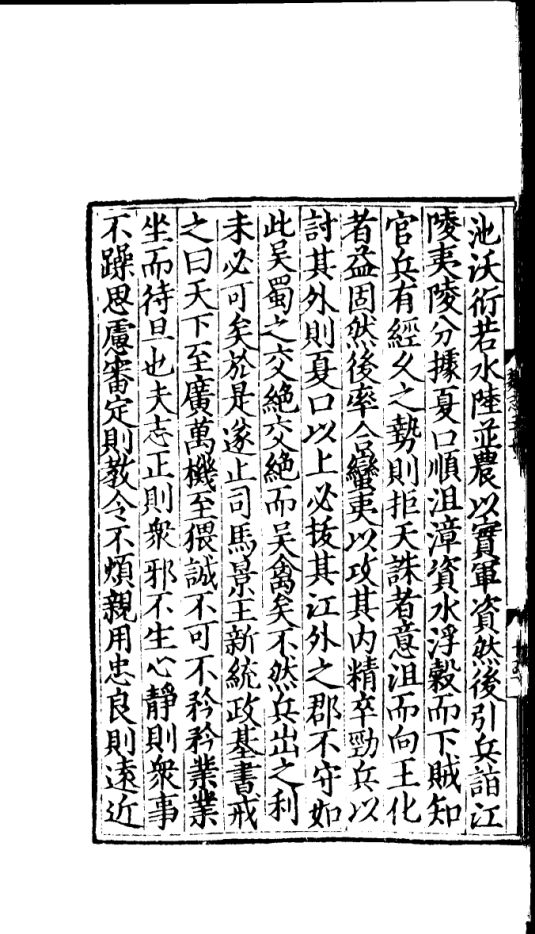 池沃衍若水陸並農以實軍資然後引兵詣江
陵夷陵分據夏口順沮漳資水浮穀而下賊知
官兵有經久之勢則拒天誅者意沮而向王化
者益固然後率合蠻夷以攻其内精卒勁兵以
討其外則夏口以上必拔其江外之郡不守如
此吴蜀之交絶交絶而吴禽矣不然兵出之利
未必可矣於是遂止司馬景王新統政基書戒
之曰天下至廣萬機至猥誠不可不矜矜業業
坐而待旦也夫志正則衆邪不生心靜則衆事
不躁思慮審定則教令不煩親用忠良則遠近